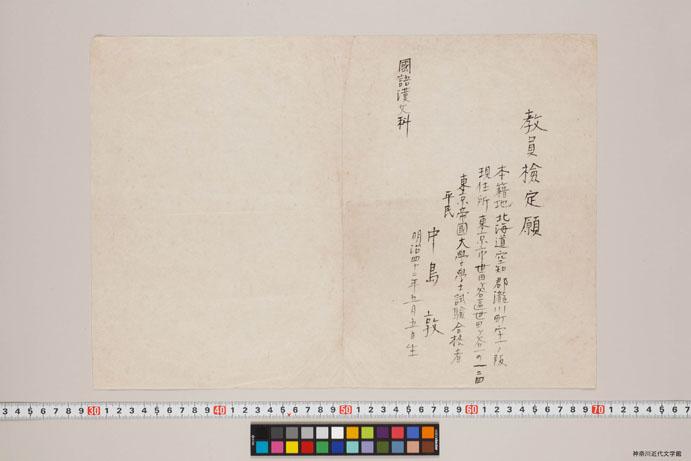 教員檢定願
本籍地 北海道空知郡瀧川町字一ノ坂
現住所 東京市世田ヶ谷區世田ヶ谷一の一二四
東京帝國大學學士試驗合格者
平民
中島 敦
明治四十二年五月五日生
國語漢文科
3 4 5 6 7 8 9 30 1 2 3 4 5 6 7 8 9 40 1 2 3 4 5 6 7 8 9 50 1 2 3 4 5 6 7 8 9 60 1 2 3 4 5 6 7 8 9 70 1 2 3 4 5 6
神奈川近代文学館